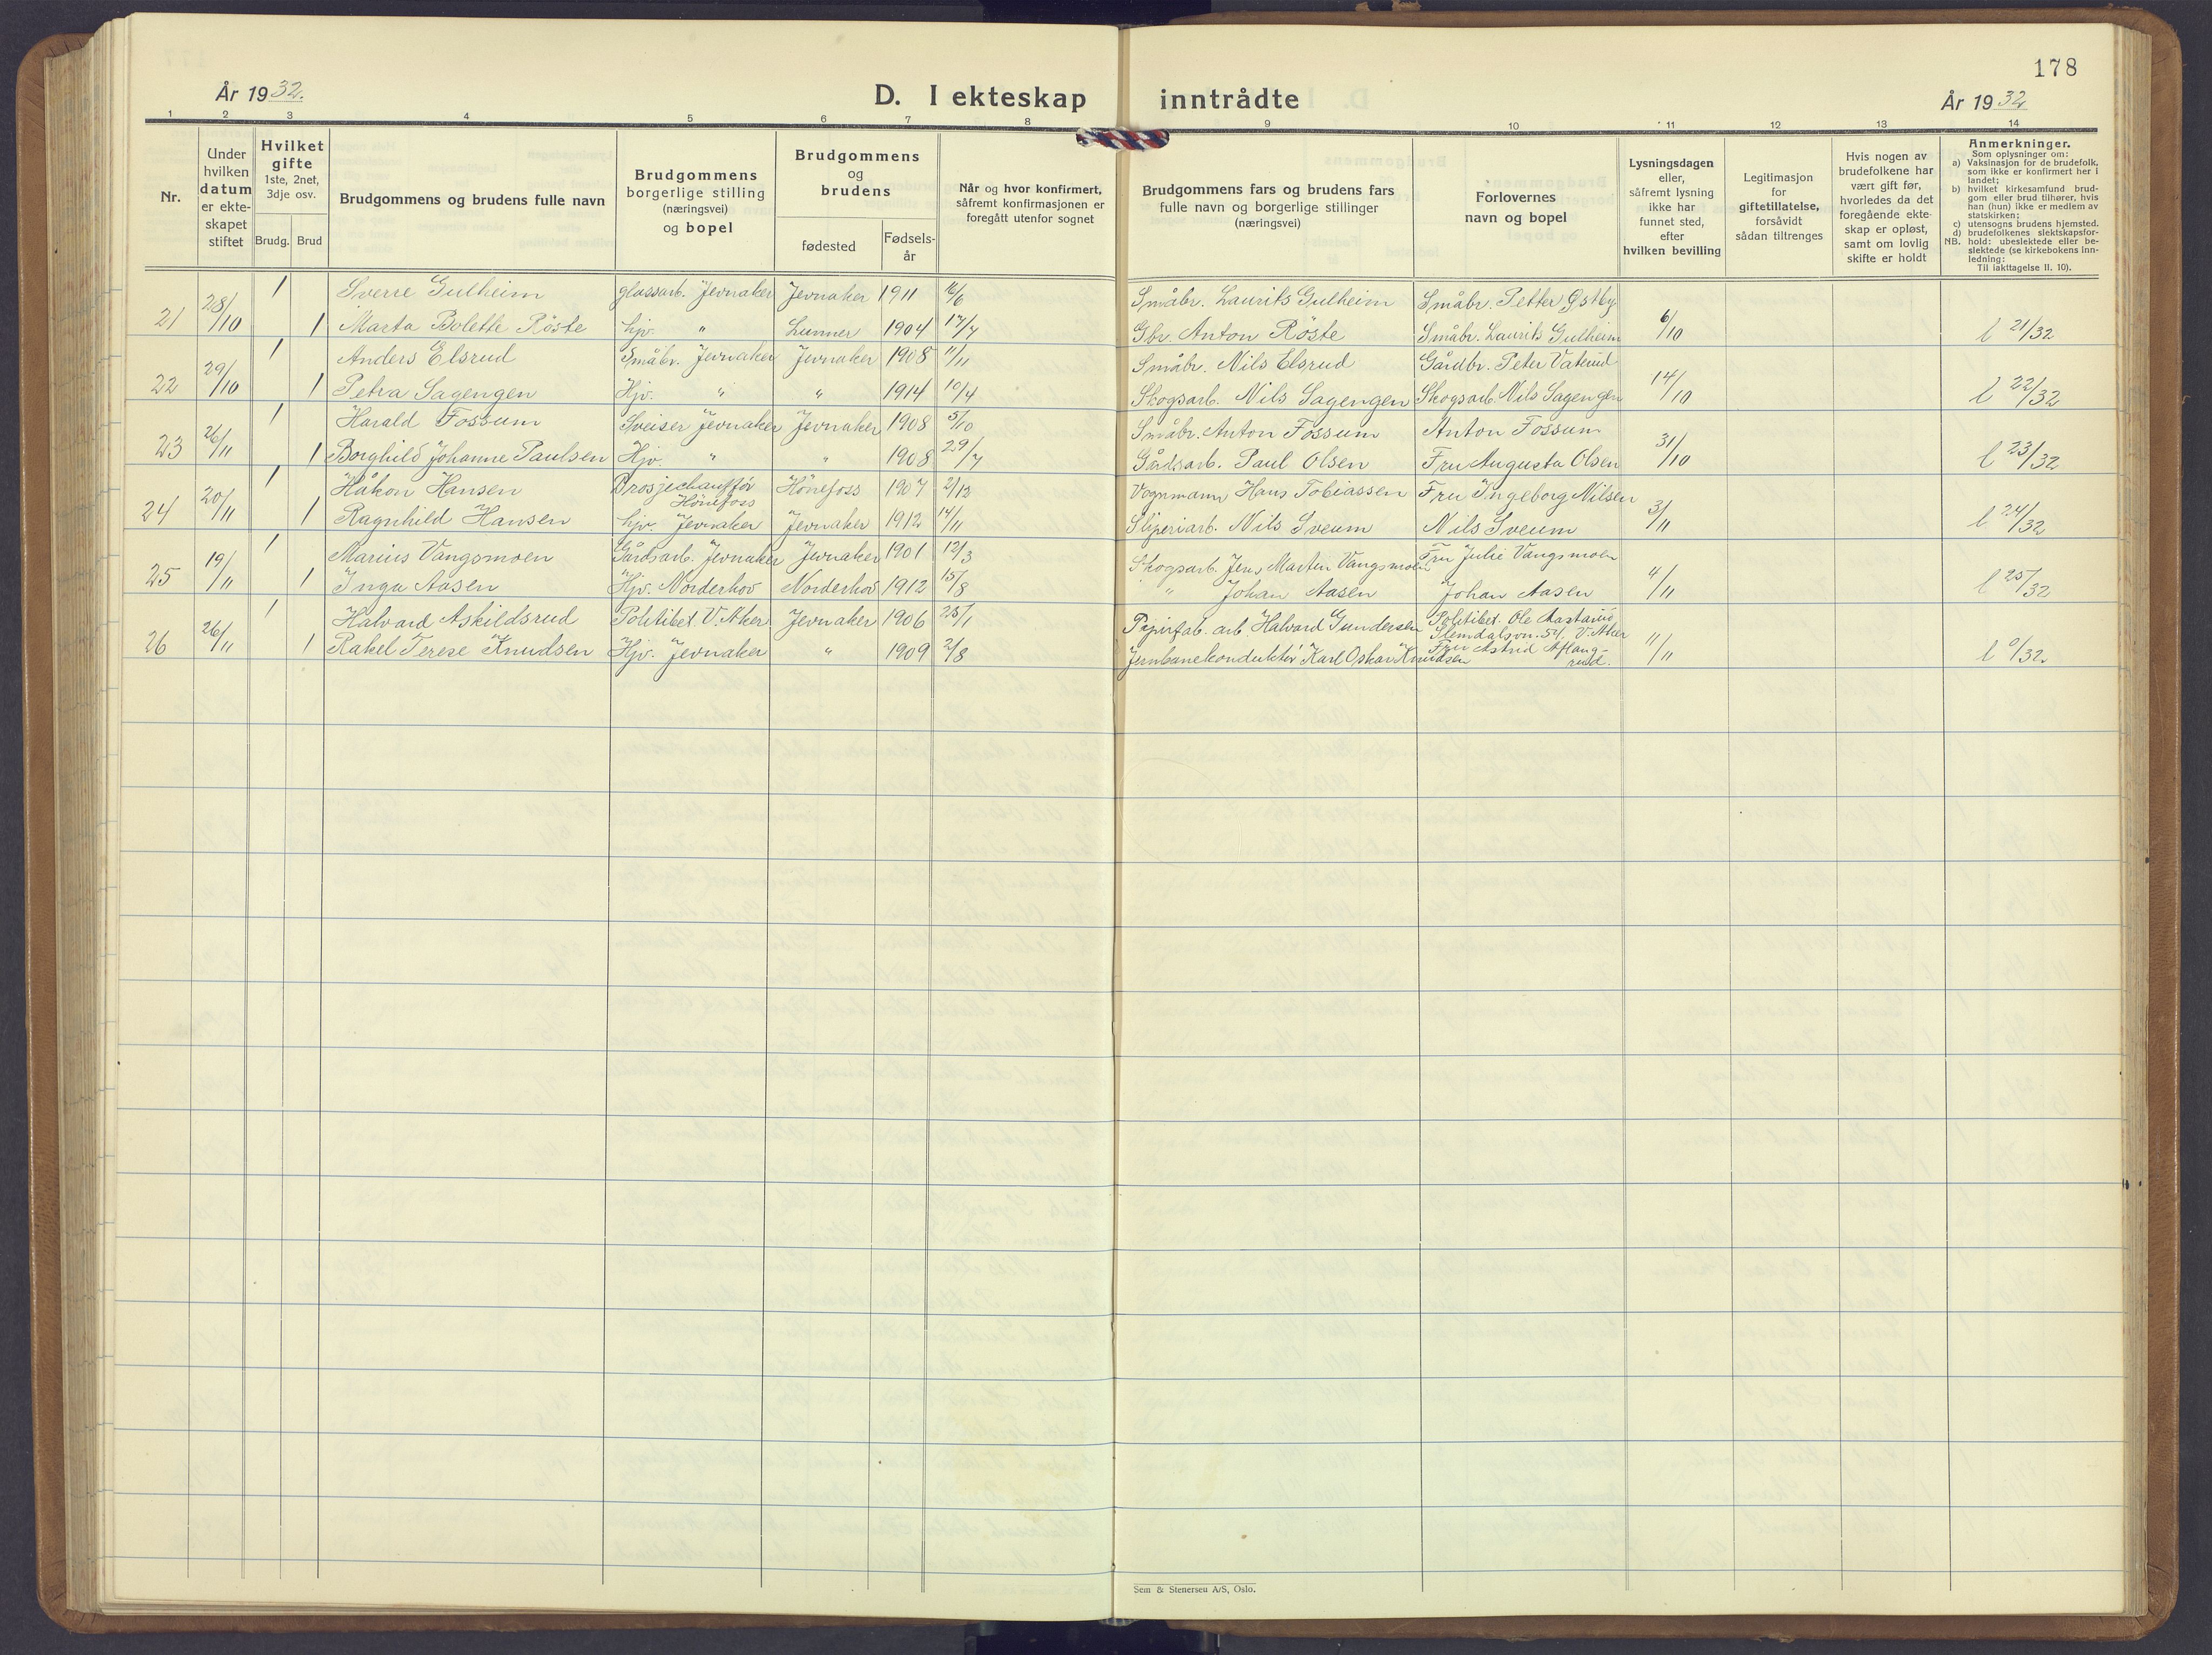 178
År 1932.
D. I ekteskap inntrådte
År 1932
1 2 3 4 5 6 7 8 9 10 11 12 13 14
Nr.
Under hvilken datum er ekteskapet stiftet
Hvilket gifte 1ste, 2net, 3dje osv.
Brudg. Brud
Brudgommens og brudens fulle navn
Brudgommens borgerlige stilling (næringsvei) og bopel
Brudgommens og brudens
fødested
Fødsels-år
Når og hvor konfirmert, såfremt konfirmasjonen er foregått utenfor sognet
Brudgommens fars og brudens fars fulle navn og borgerlige stillinger (næringsvei)
Forlovernes navn og bopel
Lysningsdagen eller, såfremt lysning ikke har funnet sted, efter hvilken bevilling
Legitimasjon for giftetillatelse, forsåvidt sådan tiltrenges
Hvis nogen av brudefolkene har vært gift før, hvorledes da det foregående ekte-skap er opløst, samt om lovlig skifte er holdt
Anmerkninger.
Som oplysninger om:
a) Vaksinasjon for de brudefolk, som ikke er konfirmert her i landet;
b) hvilket kirkesamfund brud-gom eller brud tilhører, hvis han (hun) ikke er medlem av statskirken;
c) utensogns brudens hjemsted.
d) brudefolkenes slektskapsfor-
NB. hold: ubeslektede eller be-slektede (se kirkebokens inn-ledning:
Til iakttagelse II. 10).
1 Sverre Gulheim glassarb. Jevnaker Jevnaker 1911 Småbr. Laurits Gulheim Småbr. Petter Østby
21 28/10 1 Marta Bolette Röste hjv. " Lunner 1904 17/7 Gbr. Anton Röste Småbr. Laurits Gulheim 6/10 l 21/32
1 Anders Elsrud Småbr. Jevnaker Jevnaker 1908 11/11 Småbr. Nils Elsrud Gårdbr. Peter Vaterud
22 29/10 1 Petra Sagengen Hjv. " " 1914 10/4 Skogsarb. Nils Sagengen Skogsarb. Nils Sagengen 14/10 l 22/32
1 Harald Fossum Sveiser Jevnaker Jevnaker 1908 5/10 Småbr. Anton Fossum Anton Fossum
23 26/11 1 Borghild Johanne Paulsen Hjv. " " 1908 29/7 Gårdsarb. Paul Olsen Fru Augusta Olsen 31/10 l 23/32
1 Håkon Hansen Drosjechauffør Hönefoss Hönefoss 1907 2/12 Vognmann Hans Tobiassen Fru Ingeborg Nilsen
24 20/11 1 Ragnhild Hansen hjv. Jevnaker Jevnaker 1912 14/11 Sliperiarb. Nils Sveum Nils Sveum 3/11 l 24/32
1 Marius Vangsmoen Gårdsarb. Jevnaker Jevnaker 1901 12/3 Skogsarb. Jens Martin Vangsmoen Fru Julie Vangsmoen
25 19/11 1 Inga Aasen Hjv. Norderhov Norderhov 1912 15/8 " Johan Aasen Johan Aasen 4/11 l 25/32
1 Halvard Askildsrud Politibet. V. Aker Jevnaker 1906 25/1 Papirfab. arb. Halvard Gundersen Politibet. Ole
Slemdalsvn. 54. V. Aker
26 26/11 1 Rakel Terese Knudsen Hjv. Jevnaker " 1909 2/8 Jernbanekonduktör Karl Oskar Knudsen Fru Astrid Aflang-rud. 11/11 l 0/32.
Sem & Stenersen A/S, Oslo.